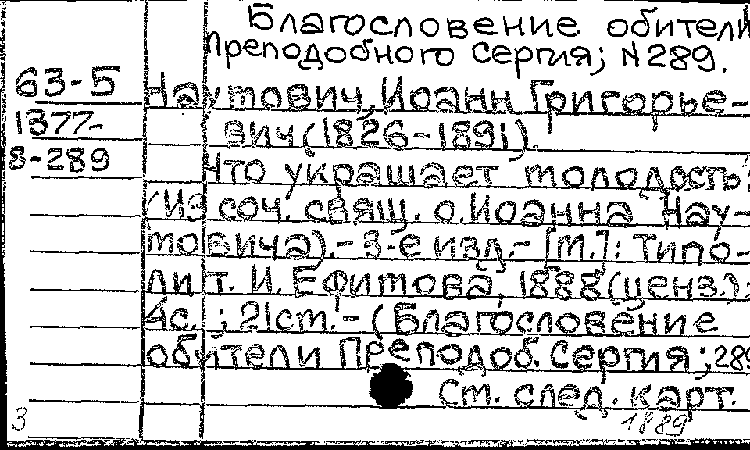 Благословение обители
Преподобного Сергия; N 289.
63-5
Наумович, Иоанн Григорье-
1377-
вич (1826-1891).
8-289
Что украшает молодость:
(Из соч. свящ. о. Иоанна Нау-
мовича).- 3-е изд.- [М.]: Типо-
лит. И. Ефимова, 1888 (ценз.).
4с. ; 21см.- (Благословение
обители Преподоб. Сергия; 289
См. след. карт.
3
1889